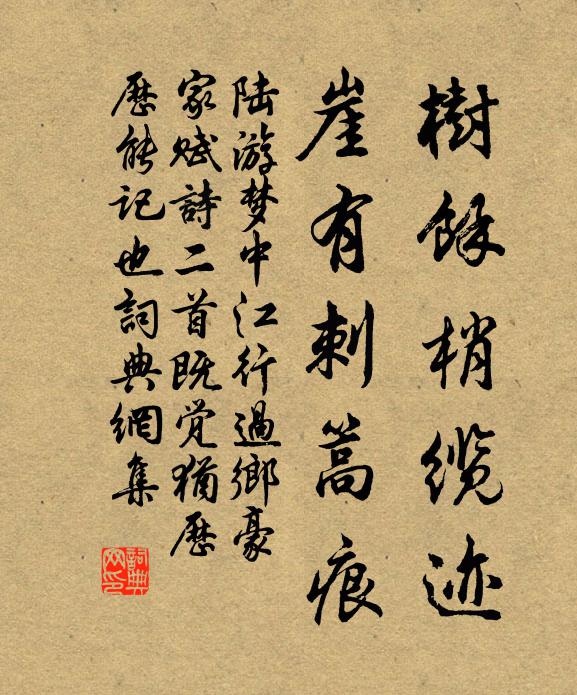 樹餘梢缆迹
崖有刺篙痕
陆游梦中江行過鄉豪
家赋詩二首既觉猶歷
歷能记也詞典網集
詞典网印